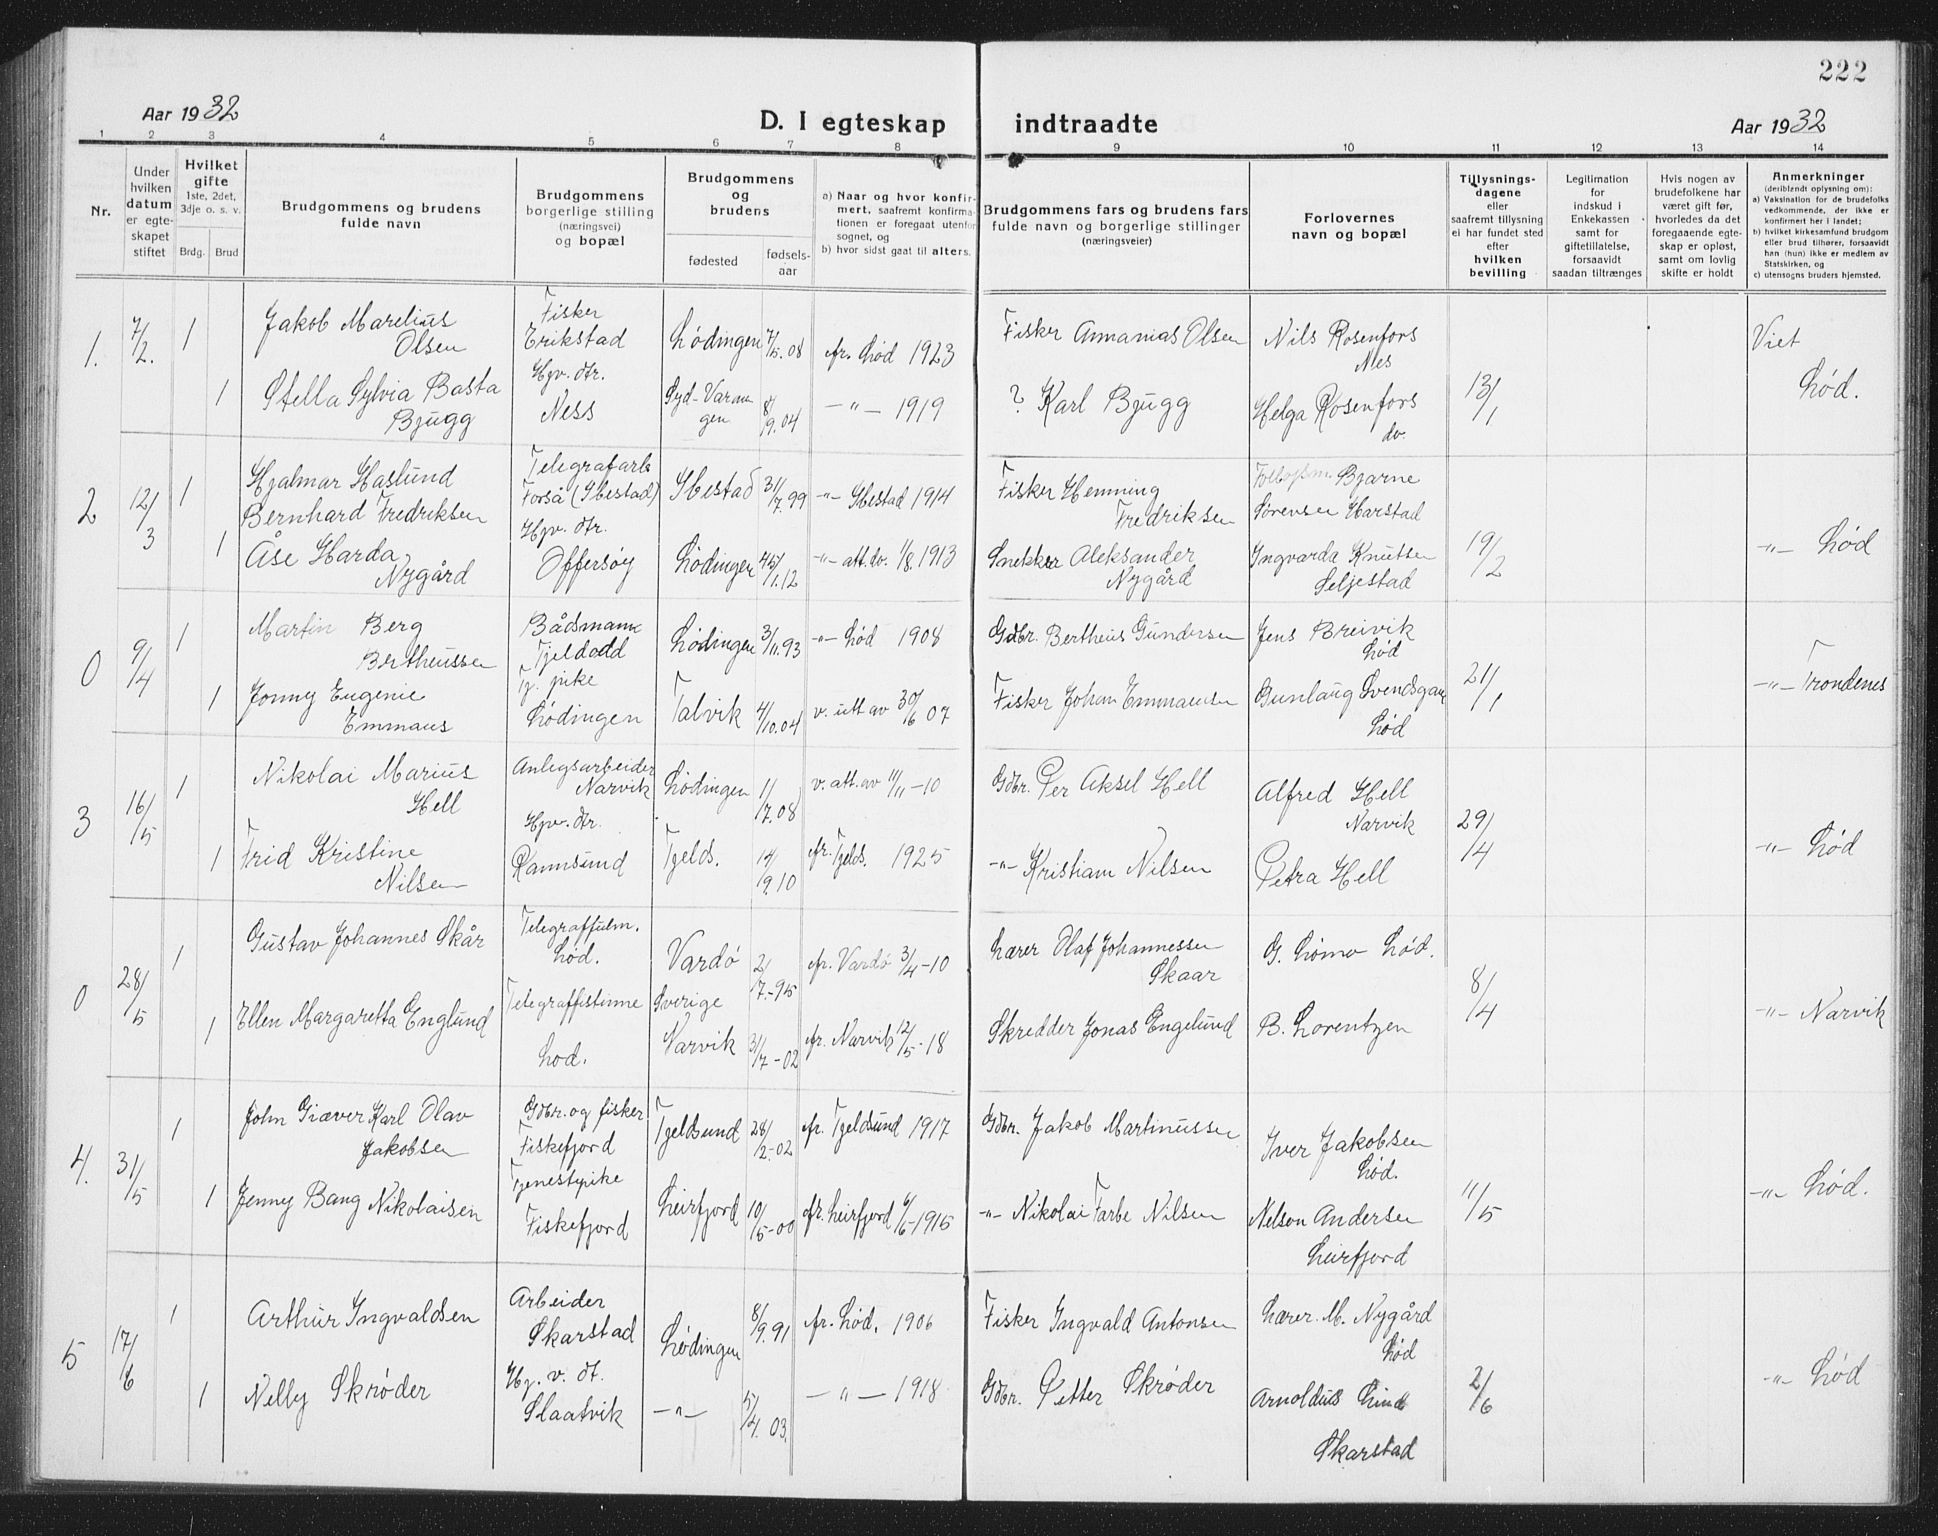 222
Aar 1932
D. I egteskap indtraadte
Aar 1932
1 2 3 4 5 6 7 8 9 10 11 12 13 14
Nr.
Under
hvilken
datum
er egte-
skapet
stiftet
Hvilket
gifte
1ste, 2det,
3dje o. s. v.
Brdg. Brud
Brudgommens og brudens
fulde navn
Brudgommens
borgerlige stilling
(næringsvei)
og bopæl
Brudgommens
og
brudens
fødested
fødsels-
aar
a) Naar og hvor konfir-
mert, saafremt konfirma-
tionen er foregaat utenfor
sognet, og
b) hvor sidst gaat til alters.
Brudgommens fars og brudens fars
fulde navn og borgerlige stillinger
(næringsveier)
Forlovernes
navn og bopæl
Tillysnings-
dagene
eller
saafremt tillysning
ei har fundet sted
efter
hvilken
bevilling
Legitimation
for
indskud i
Enkekassen
samt for
giftetillatelse,
forsaavidt
saadan tiltrænges
Hvis nogen av
brudefolkene har
været gift før,
hvorledes da det
foregaaende egte-
skap er opløst,
samt om lovlig
skifte er holdt
Anmerkninger
(deriblandt oplysning om):
a) Vaksination for de brudefolks
vedkommende, der ikke er
konfirmert her i landet;
b) hvilket kirkesamfund brudgom
eller brud tilhører, forsaavidt
han (hun) ikke er medlem av
Statskirken, og
c) utensogns bruders hjemsted.
1. 7/2. 1
Jakob Marelius
Olsen
Fisker
Erikstad
Lødingen 7/5.08 fr. Lød 1923
Fisker Annanias Olsen
Nils Rosenfors
Nes
13/1
Viet
Lød.
1
Stella Sylvia Basta
Bjugg
Hgv. dtr.
Ness
Syd-Varan
gen
8/9.04
-"- 1919
? Karl Bjugg
Helga Rosenfors
do.
2 12/3 1
Hjalmar Haslund
Bernhard Fredriksen
Telegrafarb
Forså (Ibestad)
Ibestad 31/7.99 -"- Ibestad 1914
Fisker Henning
Fredriksen
Bjarne
Sørensen Harstad
19/2
-"- Lød
1
Åse Harda
Nygård
Hgv. dtr.
Offersøy
Lødingen
-"- att. dv. 1/8. 1913
Snekker Aleksander
Nygård
Ingvarda Knutsen
Seljestad
0 9/4 1
Martin Berg
Bertheussen
Bådsmann
Tjeldodd
Lødingen 3/11.93 -"- Lød 1908
Gdbr. Bertheus Gundersen
Jens Breivik
Lød
21/1
-"- Trondenes
1
Jonny Eugenie
Emmaus
Tj. pike
Lødingen
Talvik 4/10.04 v. att av 30/6 07
Fisker Johan Emmausen
Gunlaug
Lød
3 16/5 1
Nikolai Marius
Hell
Anlegsarbeider
Narvik
Lødingen 1/7.08 v. att. av 11/11-10
Gdbr. Per Aksel Hell
Alfred Hell
Narvik
29/4
-"- Lød
1
Frid Kristine
Nilsen
Hgv. dtr.
Ramsund
Tjelds. 14/9.10 fr. Tjelds. 1925
-"- Kristian Nilsen
Petra Hell
0 28/5 1
Gustav Johannes Skår
Telegraffulm.
Lød.
Vardø 2/7.-95 fr. Vardø 3/4-10
Lærer Olaf Johannessen
Skaar
G. Lømo Lød.
8/4
-"- Narvik
1
Ellen Margaretta Englund
Telegrafistinne
Lød.
Sverige
Narvik 31/7-02 fr. Narvik 12/5-18
Skredder Jonas Engelund
B. Lorentzen
4. 31/5 1
John Giæver Karl Olav
Jakobsen
Gdbr. og fisker
Fiskefjord
Tjeldsund 28/2-02 fr. Tjeldsund 1917
Gdbr. Jakob Martinussen
Iver Jakobsen
Lød.
11/5
-"- Lød.
1
Jenny Bang Nikolaisen
Tjenestepike
Fiskefjord
Leirfjord 10/5-00 fr. Leirfjord 6/6-1915
-"- Nikolai Farbe Nilsen
Nelson Andersen
Leirfjord
5 17/6 1
Arthur Ingvaldsen
Arbeider
Skarstad
Lødingen 8/9.91 fr. Lød. 1906
Fisker Ingvald Antonsen
Lærer M. Nygård
Lød
2/6
-"- Lød
1
Nelly Skrøder
Hg. v. dt.
Slaatvik
-"- 5/4.03. -"- 1918
Gdbr. Petter Skrøder
Arnoldus Lind
Skarstad